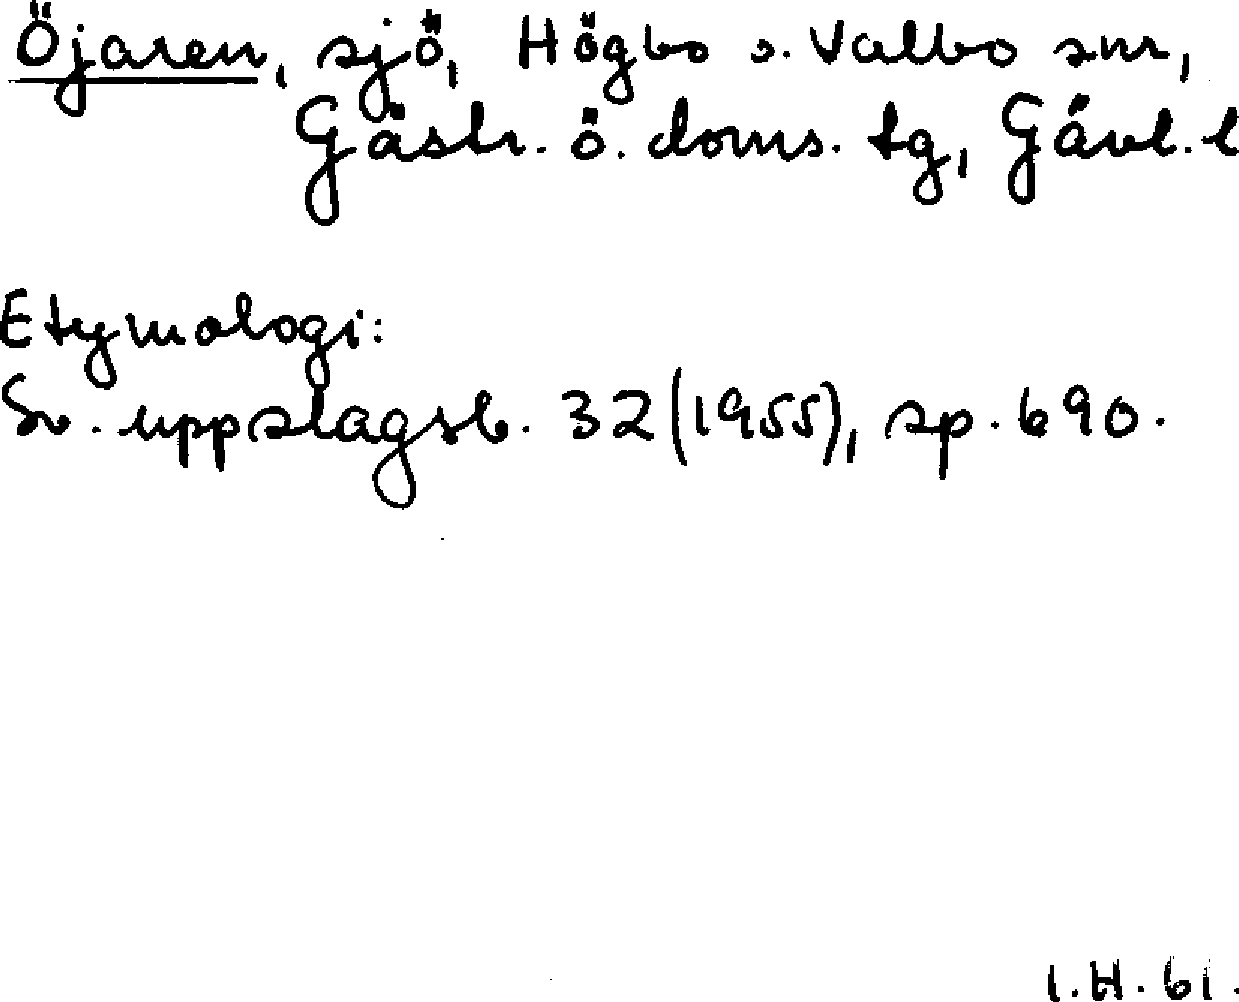 Öjaren, sjö, Högbo o. Valbo snr,
Gästr. ö. doms. tg, Gävl. l
Etymologi:
Sv. uppslagsb. 32 (1955), sp. 690.
I. H. 61.